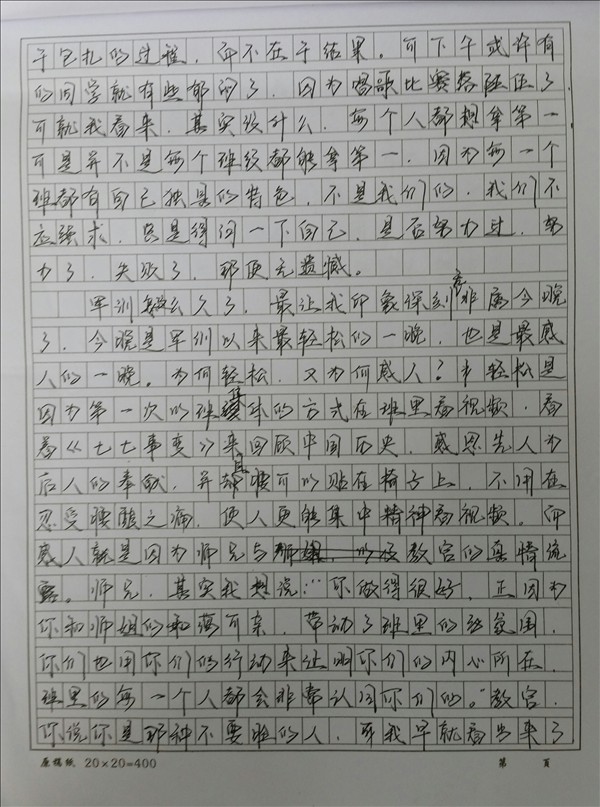 于包扎的过程，而不在于结果。可下午或许有
的同学就有些郁闷了，因为唱歌比赛名陆伍了
可就我看来，其实没什么，每个人都想拿第一
可是并不是每个班级都能拿第一，因为每一个
班都有自己独具的特色，不是我们的，我们不
应强求，只是得问一下自己，是否努力过，努
力了，失败了，那便无遗憾。
军训这么久了，最让我印象深刻之非属今晚
了，今晚是军训以来最轻松的一晚，也是最感
人的一晚。为何轻松，又为何感人？轻松是
因为第一次以班集体的方式在班里看视频，看
着《七七事变》来回顾中国历史，感恩先人为
后人的奉献，并且腰可以贴在椅子上，不用在
忍受腰酸之痛，使人更能集中精神看视频。而
感人就是因为师兄与教官的真情流
露。师兄，其实我想说：“你做得很好，正因为
你和师姐的和蔼可亲，带动了班里的氛围，
你们也用你们的行动来证明你们的内心所在，
班里的每一个人都会非常认同你们的。”教官，
你说你是那种不要脸的人，而我早就看出来了
原稿纸 20×20=400 第 页